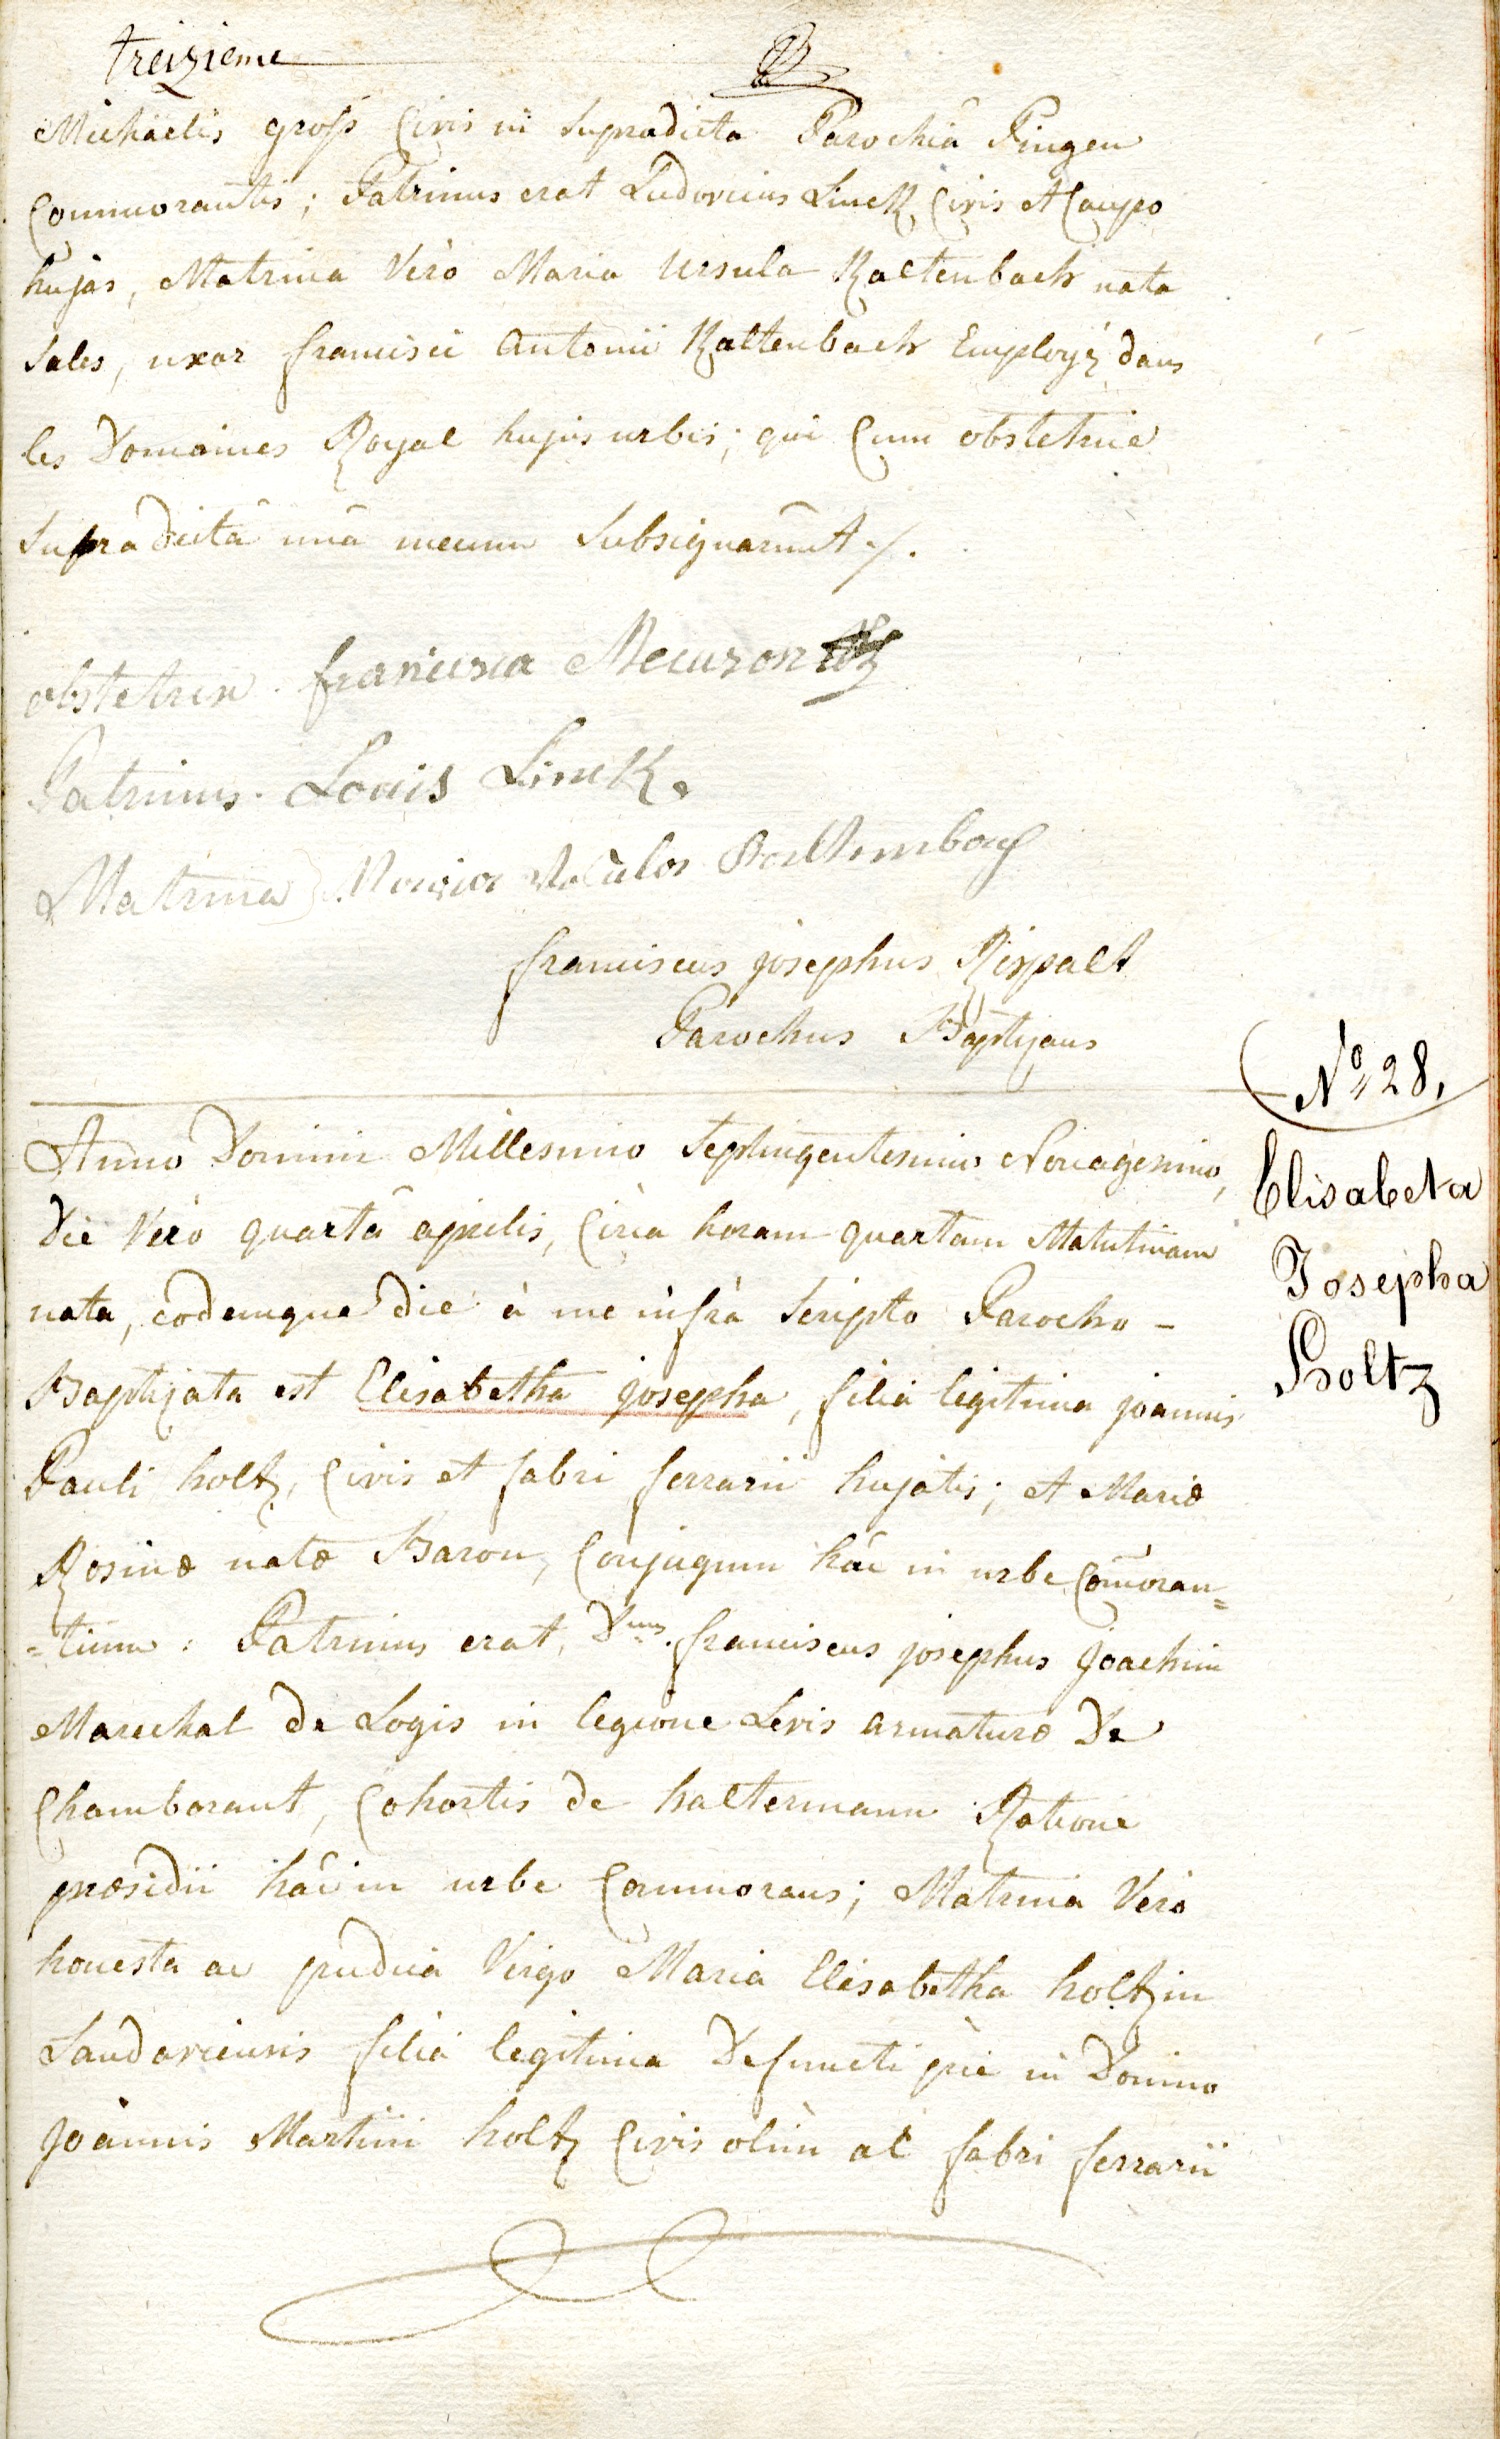 treizieme
Michäelis gross Civis in supradicta Parochiâ Pingen
Commorantis; Patrinus erat Ludovicus Linck Civis et Caupo
hujas, Matrina Verò Maria Ursula Kaltenbach nata
Sales, uxor francisci Antonii Kaltenbach Employé dans
les Domaines Royal hujus urbis; qui Cum obstetrice
Supradictâ unâ mecum Subsignarunt ./.
obstetrix francisca
Patrinus Louis Linck.
Matrina Maria
franciscus josephus
Parochus Baptizans
No. 28.
Elisabeta
Josepha
Holtz
Anno Domini Millesimo Septingentesimo Nonagesimo,
Die Verò quartâ aprilis, Circa horam quartam Matutinam
nata, eodemque die à me infrà Scripto Parocho -
Baptizata est Elisabetha josepha, filia legitima joannis
Pauli holtz, Civis et fabri ferrarii hujatis; et Mariæ
Rosinæ natæ Baron, Conjugum hâc in urbe Com̄oran=
=tium: Patrinus erat, Dnus. franciscus josephus Joachim
Marechal de Logis in legione Levis armaturæ De
Chamborant, Cohortis de haltermann Ratione
præsidii hâc in urbe Commorans; Matrina Verò
honesta ac pudica Virgo Maria Elisabetha holtzin
Landaviensis filia legitima Defuncti piè in Domino
Joannis Martini holtz Civis olim ac fabri ferrarii